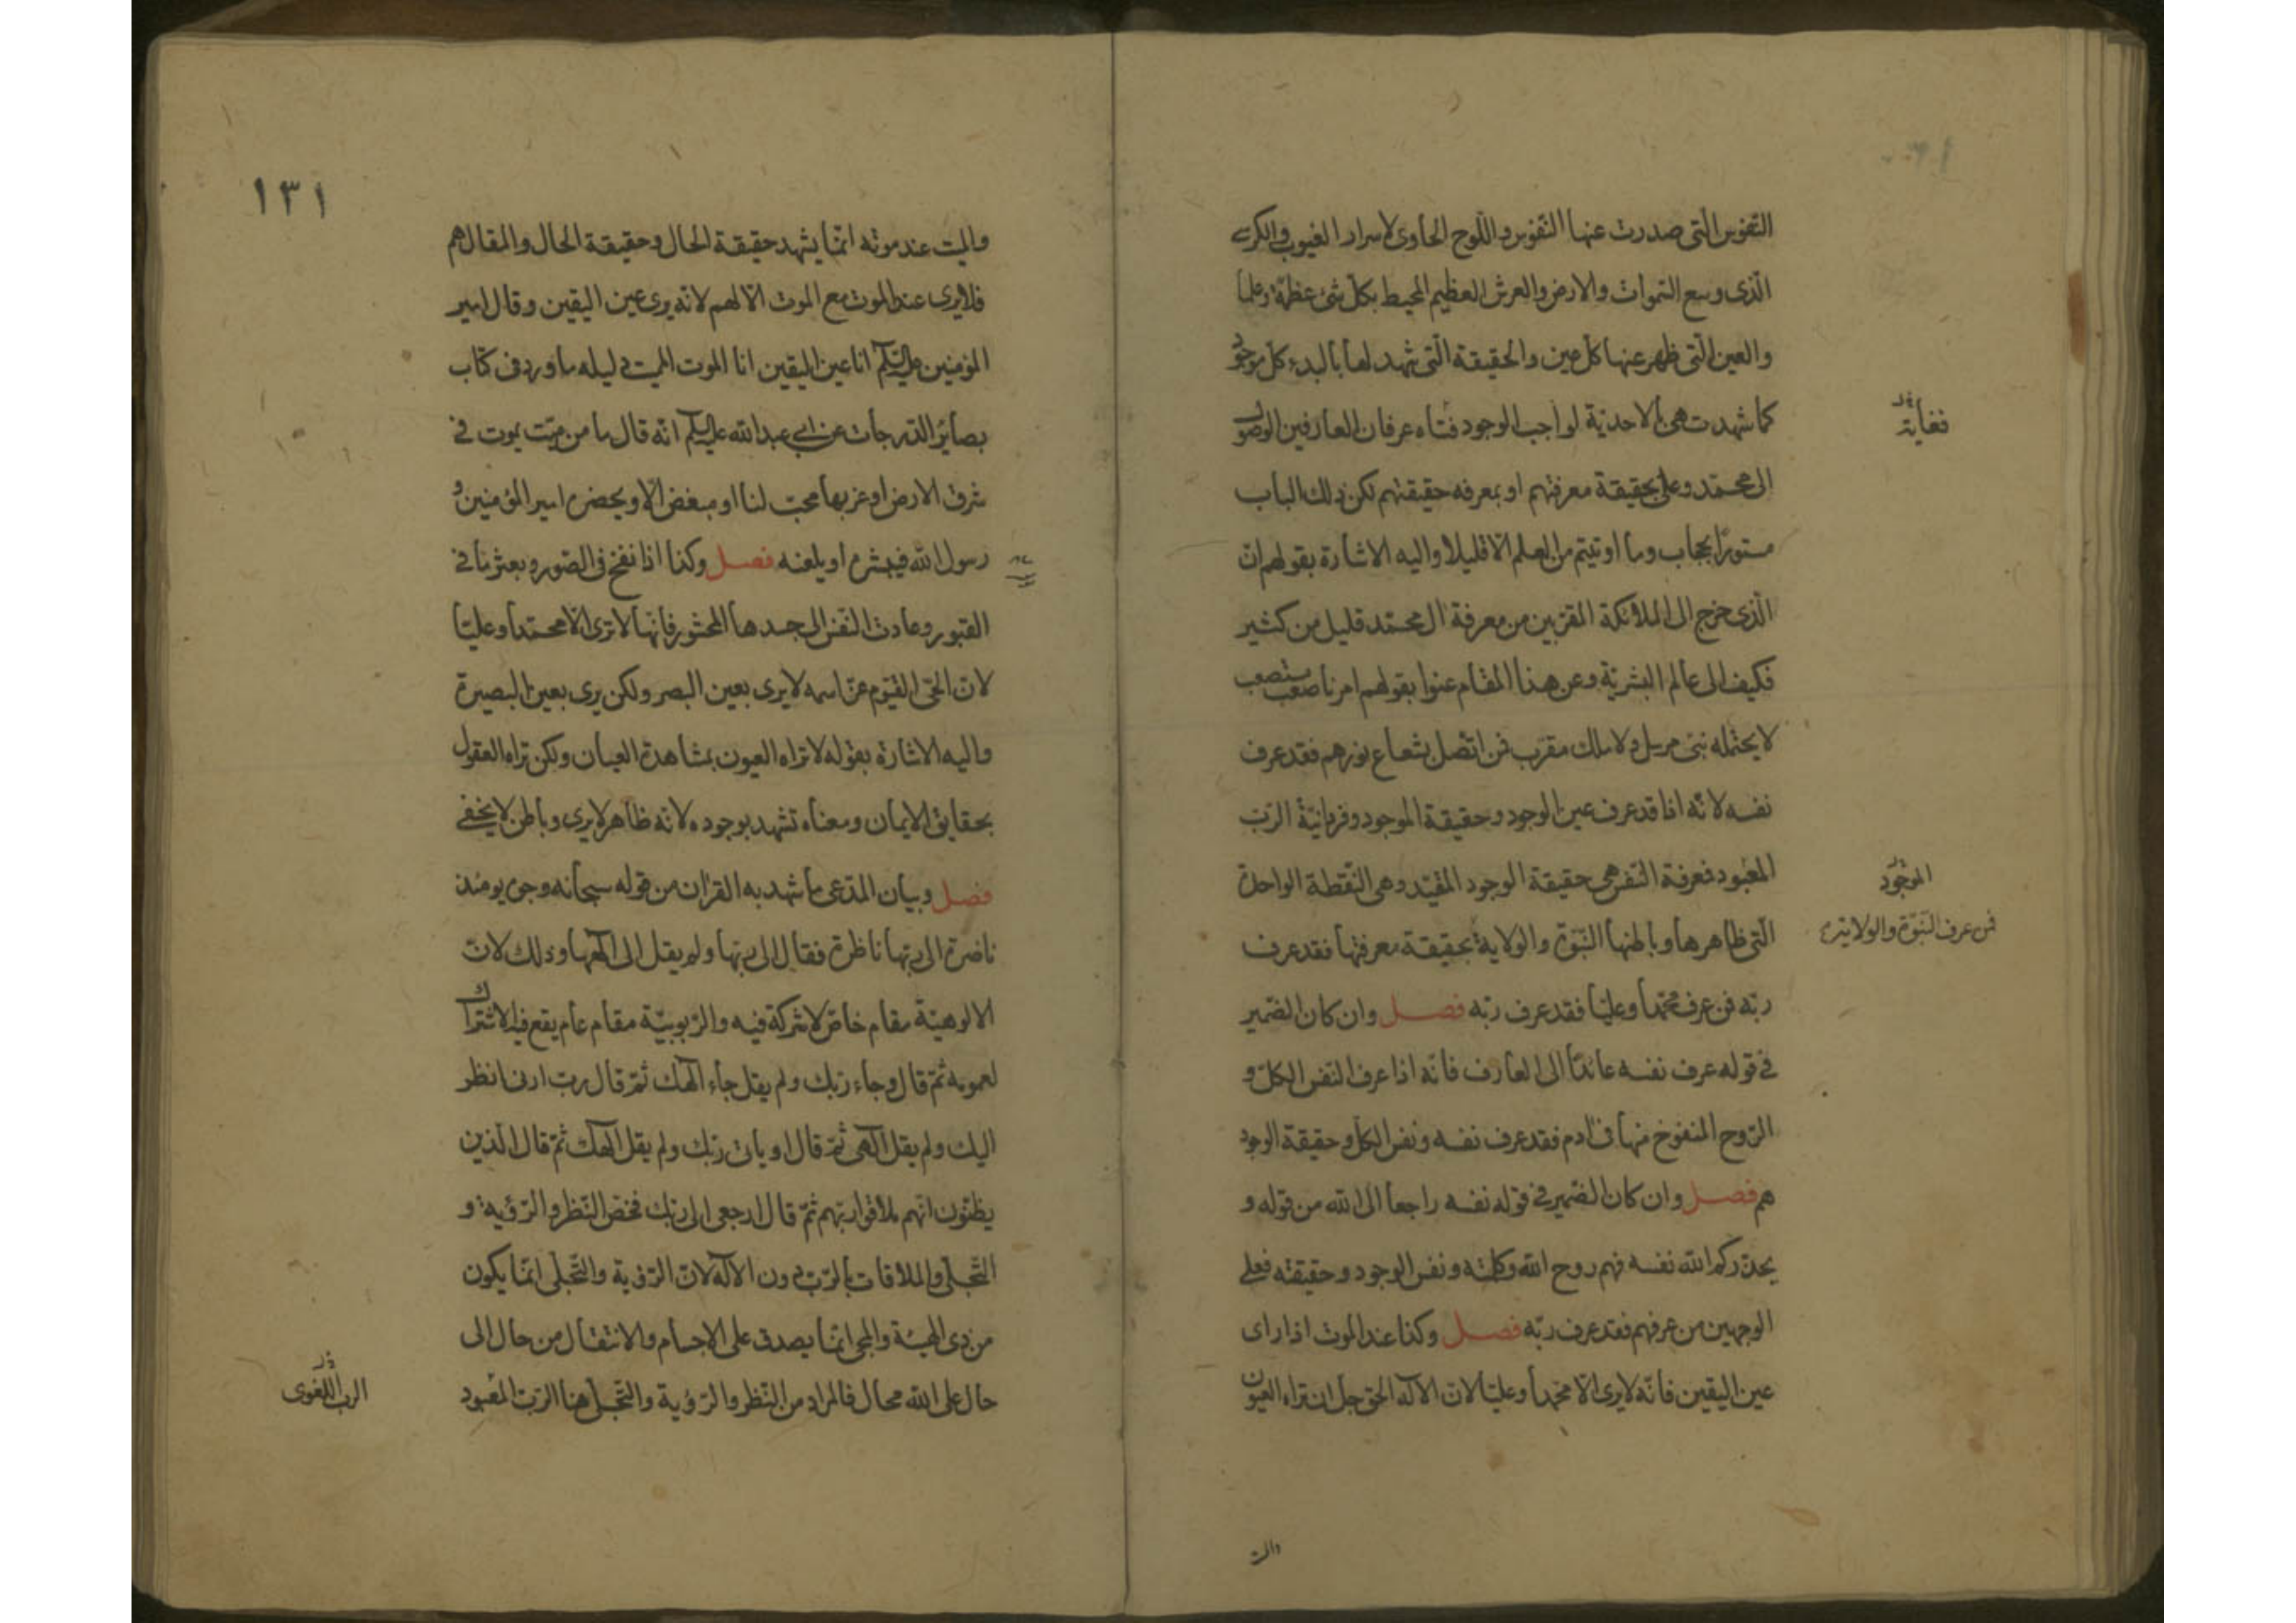 النفوس التى صدرت عنها النفوس واللوح الحاوى لاسرار الغيوب والكرسى
الذى وسع السموات والارض والعرش العظيم المحيط بكل شئ عظمة وعلما
والعين التى ظهر عنها كل عين والحقيقة التى شهد لها بالبدء كل موجود
كما شهدت هى بالاحدية لواجب الوجود فتاه عرفان العارفين الوصول
الى محمد وعلى بحقيقة معرفتهم او بمعرفه حقيقتهم لكن ذلك الباب
مستورا بحجاب وما اوتيتم من العلم الا قليلا واليه الاشارة بقولهم ان
الذى خرج الى الملائكة المقربين من معرفة ال محمد قليل من كثير
فكيف الى عالم البشرية وعن هذا المقام عنوا بقولهم امرنا صعب مستصعب
لا يحتمله نبى مرسل ولا ملك مقرب فمن اتصل بشعاع نورهم فقد عرف
نفسه لانه اذا قد عرف عين الوجود وحقيقة الموجود وفردانية الرب
المعبود فمعرفة النفس هى حقيقة الوجود المقيد وهى النقطة الواحدة
التى ظاهرها وباطنها النبوة والولاية بحقيقة معرفتها فقد عرف
ربه فمن عرف محمدا وعليا فقد عرف ربه فصل وان كان الضمير
فى قوله عرف نفسه عائدا الى العارف فانه اذا عرف النفس الكل و
الروح المنفوخ منها فى ادم فقد عرف نفسه ونفس الكل وحقيقة الوجود
هم فصل وان كان الضمير فى قوله نفسه راجعا الى الله من قوله و
يحذركم الله نفسه فهم روح الله وكلمته ونفس الوجود وحقيقته فعلى
الوجهين من عرفهم فقد عرف ربه فصل وكذا عند الموت اذا راى
عين اليقين فانه لا يرى الا محمدا وعليا لان الاله الحق جل ان تراه العيون
فغاية
الموجود
فمن عرف النبوة والولاية
١٣١
والميت عند موته انما يشهد حقيقة الحال وحقيقة الحال والمقال هم
فلا يرى عند الموت مع الموت الا لهم لانه يرى عين اليقين وقال امير
المؤمنين عليه السلام انا عين اليقين انا الموت المميت دليله ما ورد فى كتاب
بصائر الدرجات عن ابى عبدالله عليه السلام انه قال ما من ميت يموت فى
شرق الارض او غربها محب لنا او مبغض الا ويحضره امير المؤمنين و
رسول الله فيبشره او يلعنه فصل وكذا اذا نفخ فى الصور وبعثر ما فى
القبور وعادت النفس الى جسدها المحشور فانها لا ترى الا محمدا وعليا
لان الحى القيوم عز اسمه لا يرى بعين البصر ولكن يرى بعين البصيرة
واليه الاشارة بقوله لا تراه العيون بمشاهدة العيان ولكن تراه العقول
بحقايق الايمان ومعناه تشهد بوجوده لانه ظاهر لا يرى وباطن لا يخفى
فصل وبيان المدعى ما شهد به القران من قوله سبحانه وجوه يومئذ
ناضرة الى ربها ناظرة فقال الى ربها ولم يقل الى الهها وذلك لان
الالوهية مقام خاص لا شركة فيه والربوبية مقام عام يقع فيه الاشتراك
لعمومه ثم قال وجاء ربك ولم يقل جاء الهك ثم قال رب ارنى انظر
اليك ولم يقل الهى ثم قال او يات ربك ولم يقل الهك ثم قال الذين
يظنون انهم ملاقوا ربهم ثم قال ارجعى الى ربك فخص النظر والرؤية و
التجلى والملاقات بالرب دون الاله لان الرؤية والتجلى انما يكون
من ذى الهيئة والمجئ انما يصدق على الاجسام والانتقال من حال الى
حال على الله محال فالمراد من النظر والرؤية والتجلى هنا الرب المعبود
الرب اللغوى